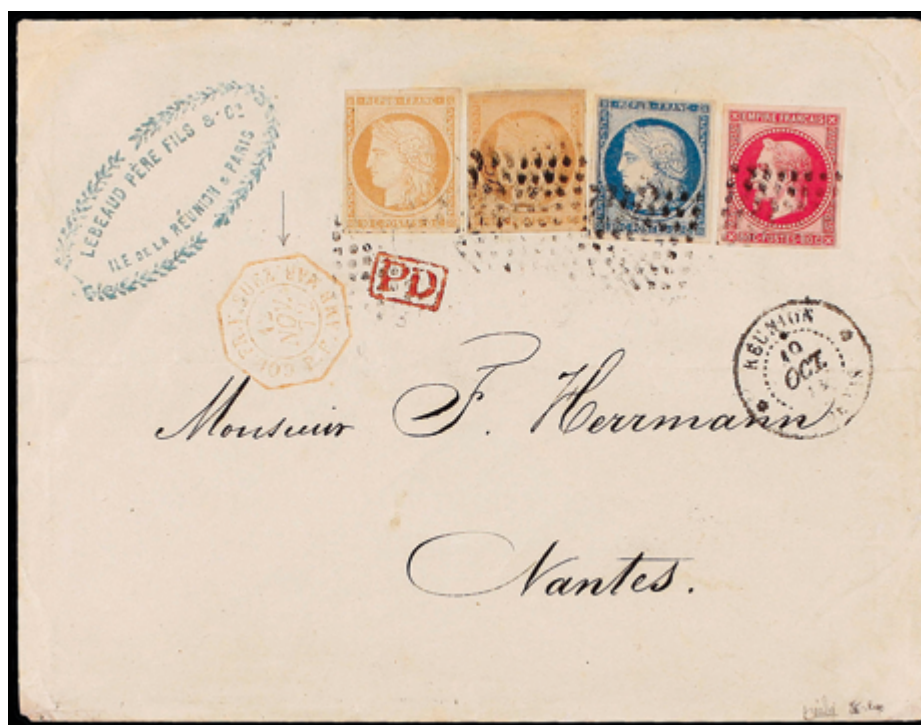 LEBEAUD PÈRE FILS & Cⁱᵉ
ILE DE LA RÉUNION & PARIS
REPUB. FRANC.
REPUB. FRANC.
EMPIRE FRANÇAIS
80 C · POSTES · 80 C
PD
RÉUNION
19
OCT.
Monsieur F. Herrmann
Nantes.